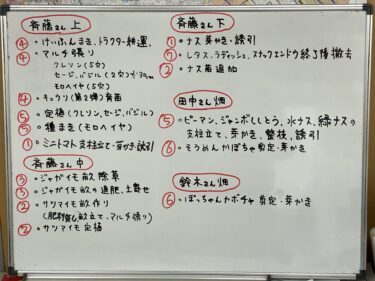 斉藤さん 上
④・けいふんまき、トラクター耕運、
④・マルチ張り
クレソン(5穴)
セージ、バジル(2穴)
モロヘイヤ(5穴)
④・キュウリ(第2弾)育苗
⑤・定植(クレソン、セージ、バジル)
⑤・種まき(モロヘイヤ)
①・ミニトマト 支柱立て・芽かき誘引
斉藤さん 中
③・ジャガイモ畝 除草
③・ジャガイモの追肥、土寄せ
②・サツマイモ畝作り
(肥料無し畝立て・マルチ張り)
②・サツマイモ定植
斉藤さん 下
①・ナス 芽かき・誘引
⑦・レタス、ラディッシュ、スナックエンドウ終了種撤去
②・ナス苗追加
田中さん畑
⑤・ピーマン、ジャンボししとう、水ナス、緑ナスの
支柱立て、芽かき、整枝、誘引
⑥・そうめんかぼちゃ剪定・芽かき
鈴木さん畑
⑥・ぼっちゃんカボチャ 剪定・芽かき